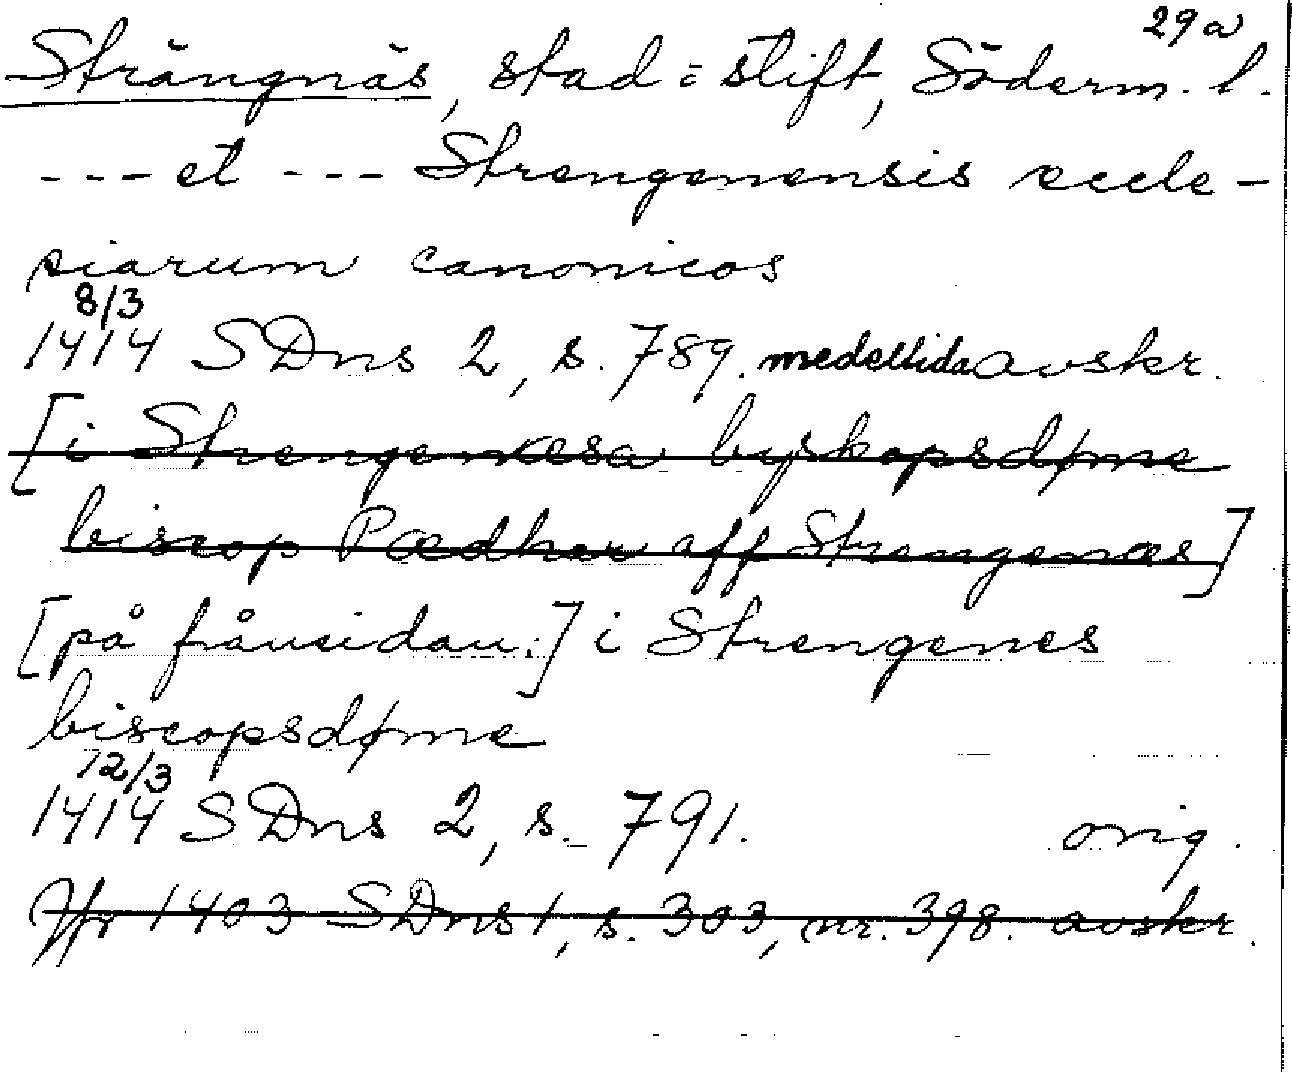 29a
Strängnäs, stad = stift, Söderm. l.
--- et --- Strengenensis eccle-
siarum canonicos
8/3
1414 SDns 2, s. 789. medeltida avskr.
[i Strengenæsa byskopsdøme
biscop Pædher aff Strengenæs]
[på frånsidan:] i Strengenes
biscopsdøme
12/3
1414 SDns 2, s. 791. orig.
Jfr 1403 SDns 1, s. 303, nr. 398. avskr.